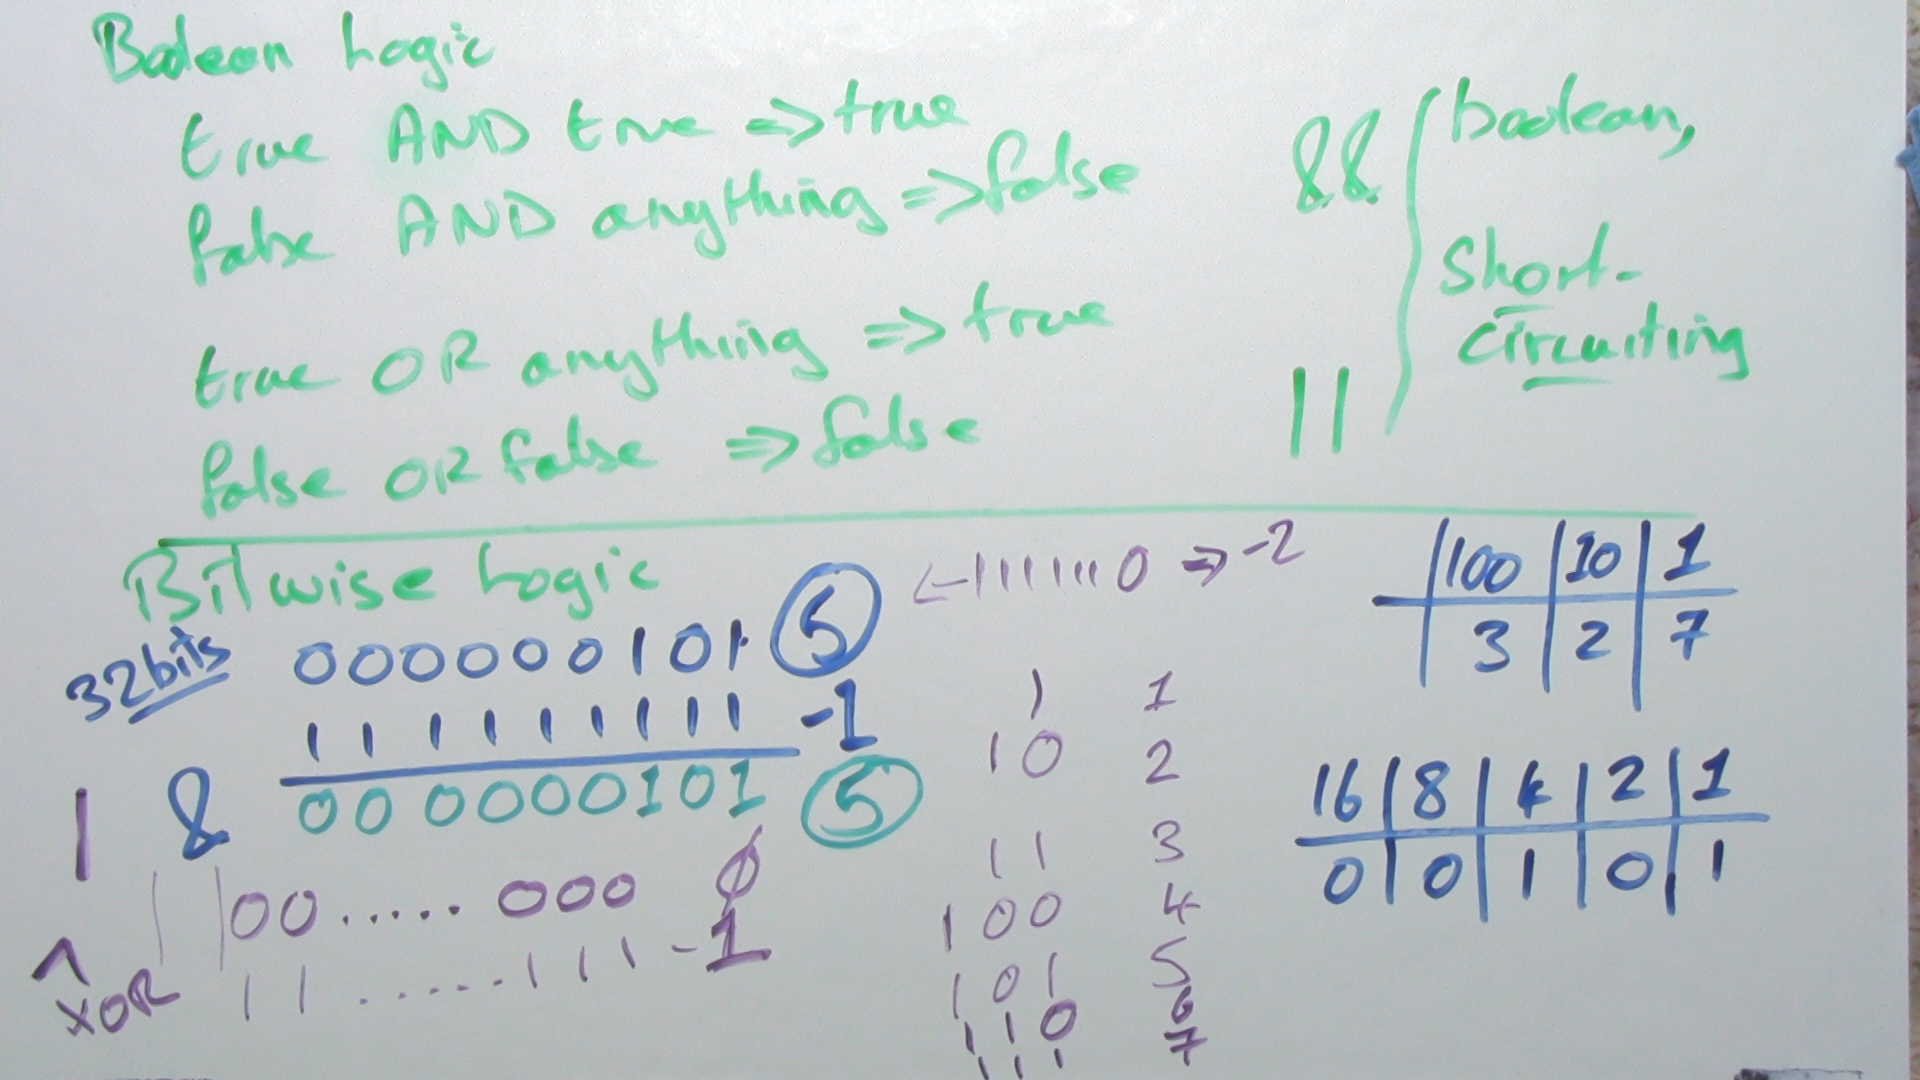 Boolean Logic
true AND true => true
false AND anything => false
true OR anything => true
false OR false => false
&& boolean,
Short-
circuiting
||
Bitwise Logic
32bits
000000101 5
111111111 -1
| & 000000101 5
00.....000 0
11......111 -1
^
XOR
<-1111110 => -2
1 1
10 2
11 3
100 4
101 5
110 6
111 7
100 | 10 | 1
3 | 2 | 7
16 | 8 | 4 | 2 | 1
0 | 0 | 1 | 0 | 1